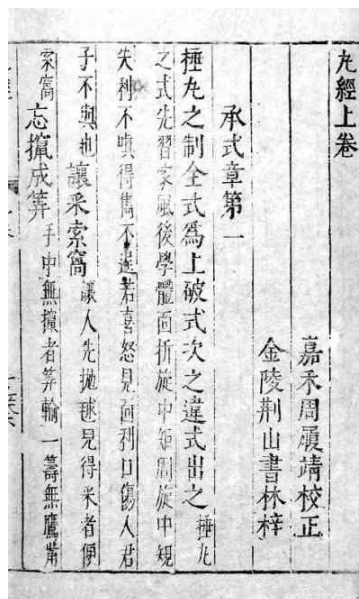 丸經上卷
嘉禾周履靖校正
金陵荊山書林梓
承式章第一
捶丸之制全式爲上破式次之違式出之捶丸
之式先習家風後學體面折旋中矩周旋中規
失利不嗔得雋不逞若喜怒見面利口傷人君
子不與也讓采索窩讓人先拋毬兒得采者便
索窩忘攛成筭手中無攛者筭輸一籌無鷹觜